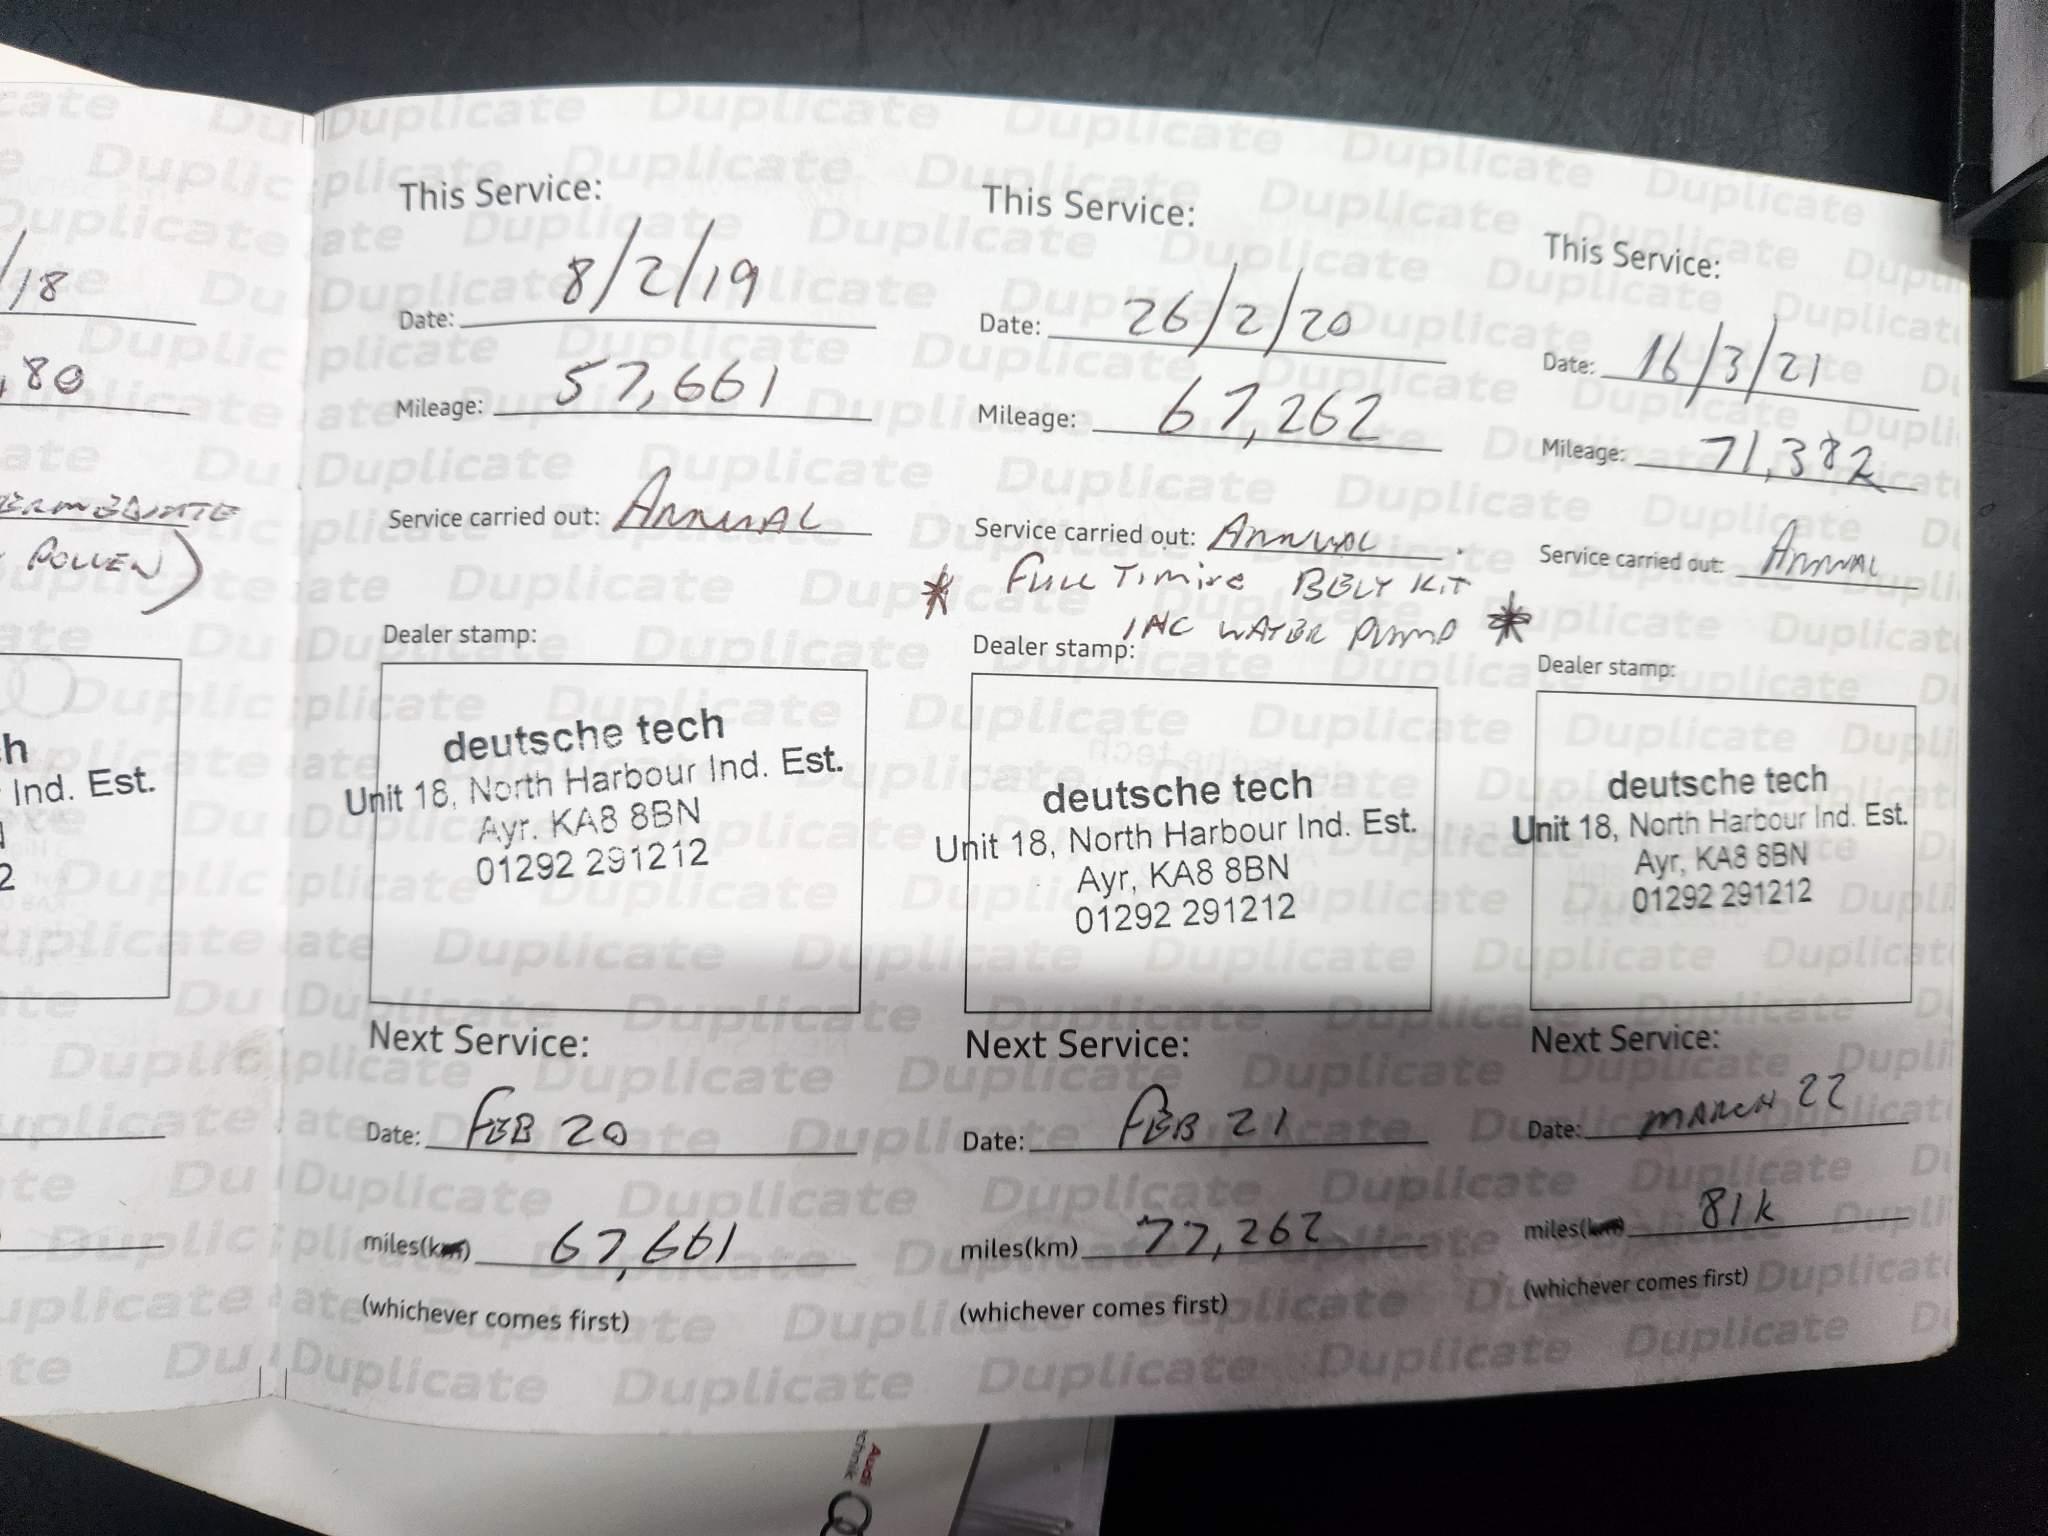 /18
,80
ERMEDIATE
POLLEN)
h
Ind. Est.
2
This Service:
Date: 8/2/19
Mileage: 57,661
Service carried out: ANNUAL
Dealer stamp:
deutsche tech
Unit 18, North Harbour Ind. Est.
Ayr. KA8 8BN
01292 291212
Next Service:
Date: FEB 20
miles(km) 67,661
(whichever comes first)
This Service:
Date: 26/2/20
Mileage: 67,262
Service carried out: ANNUAL.
* FULL TIMING BELT KIT
INC WATER PUMP *
Dealer stamp:
deutsche tech
Unit 18, North Harbour Ind. Est.
Ayr, KA8 8BN
01292 291212
Next Service:
Date: FEB 21
miles(km) 77,262
(whichever comes first)
This Service:
Date: 16/3/21
Mileage: 71,382
Service carried out: ANNUAL
Dealer stamp:
deutsche tech
Unit 18, North Harbour Ind. Est.
Ayr, KA8 8BN
01292 291212
Next Service:
Date: MARCH 22
miles(km) 81k
(whichever comes first)
Audi
Duplicate